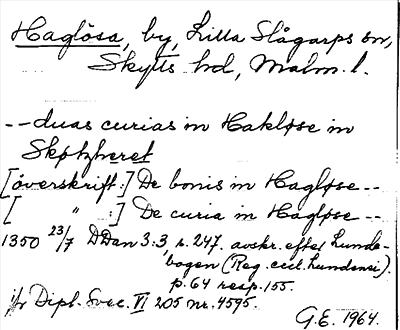 Haglösa, by, Lilla Slågarps sn,
Skytts hd, Malm. l.
-- duas curias in Hakløse in
Skøtzheret
[överskrift:] De bonis in Hagløse --
[ " :] De curia in Hagløse --
1350 23/7 DDan 3:3, s. 247. avskr. efter Lunde-
bogen (Reg. eccl. Lundensi).
p. 64 resp. 155.
Dipl. Svec. VI 205 nr. 4595.
G.E. 1964.